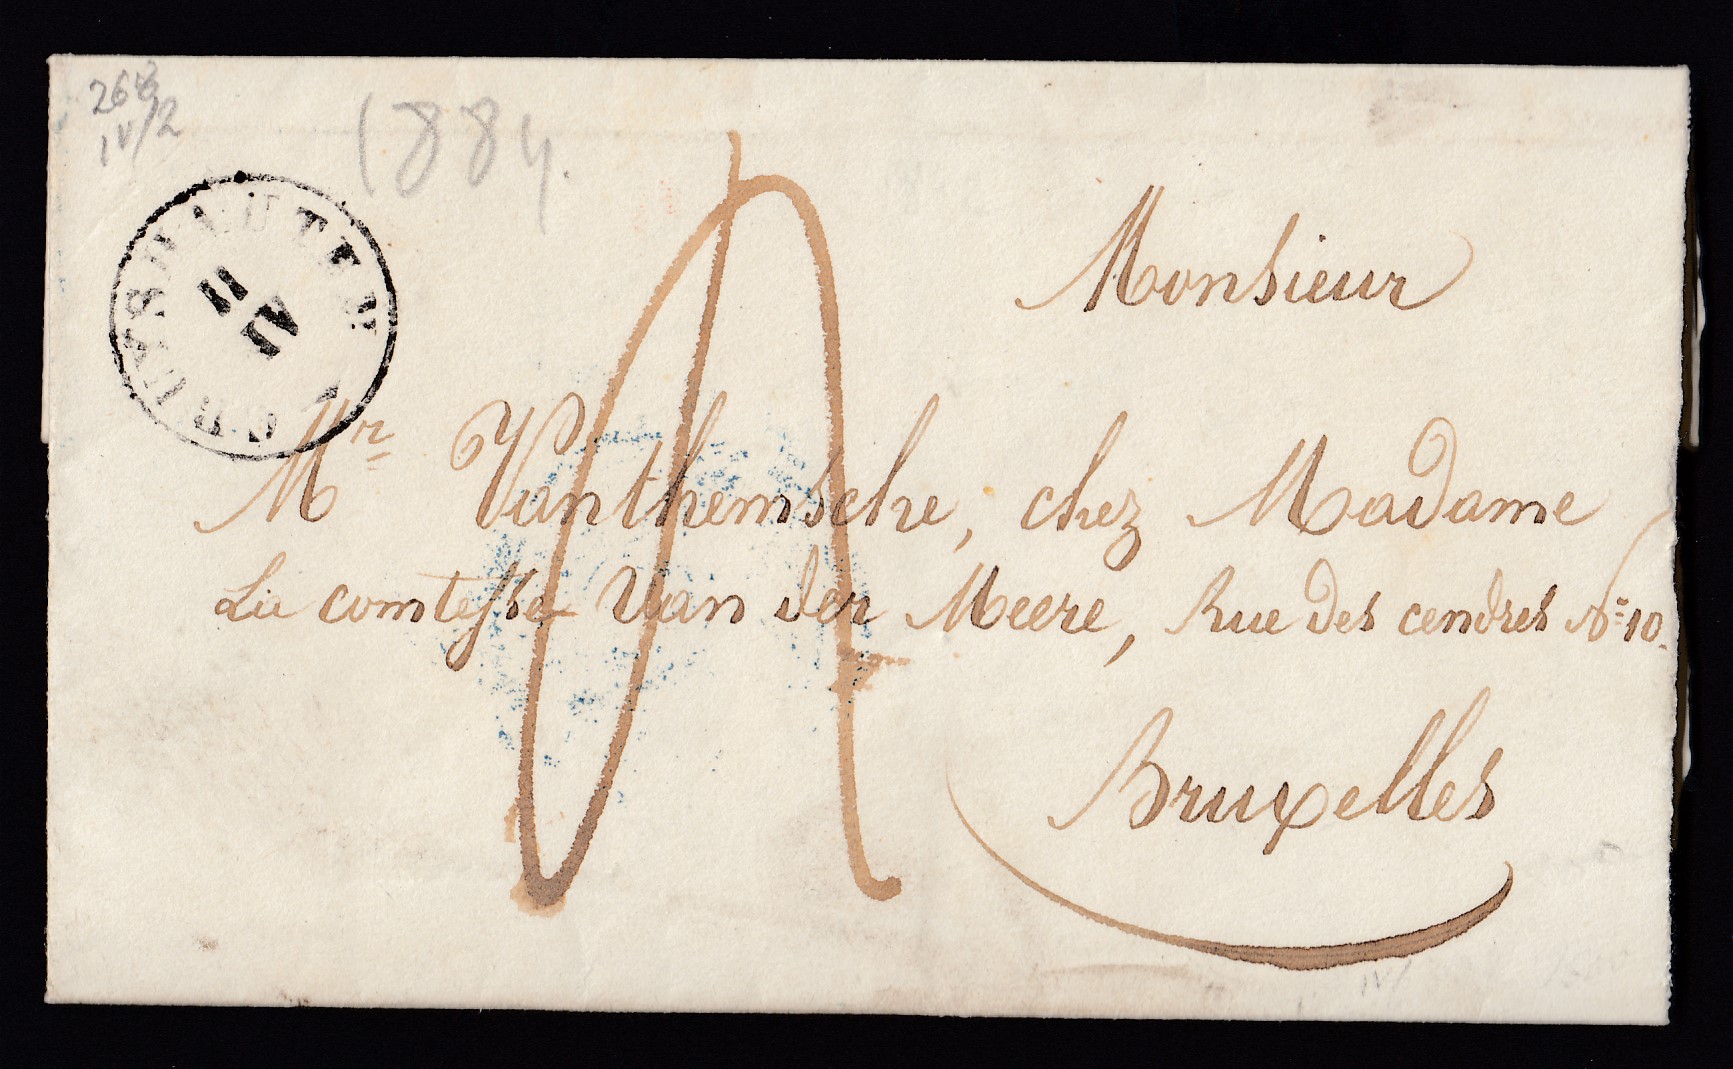 268
IV/2
1884.
CRUYSHAUTEM
11
IV
Monsieur
Mr Vanthemsche, chez Madame
La comtesse Van der Meere, Rue des cendres No 10.
Bruxelles
IV/